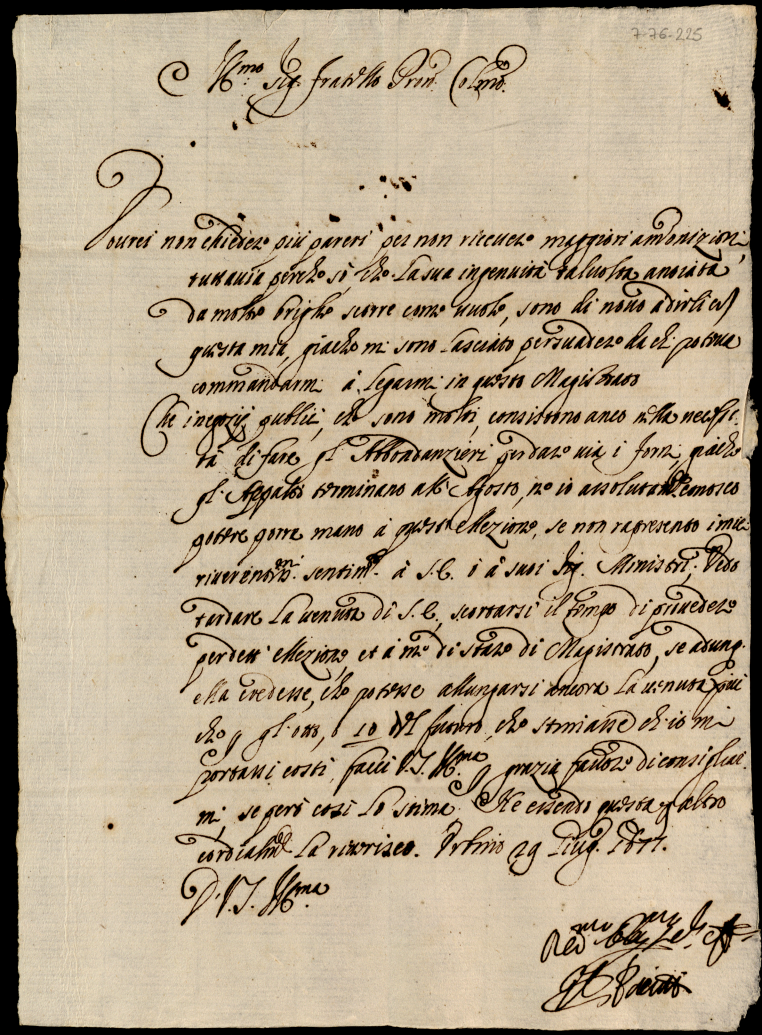 7-76-225
Ill.mo Sig. fratello Pron. Colmo.
Vourei non chiedere più pareri per non riceuere maggiori amonizioni,
tuttauia perche sò, che la sua ingenuità talvolta anoiata
da molte brighe scorre come vuole, sono di nouo a dirli
questa mia, giache mi sono lasciato persuadere da chi poteua
commandarmi à legarmi in questo Magistrato
Che i negozij publici, che sono molti, consistono anco nella necessi-
tà di fare gl' Abbondanzieri per dare uia i forni, giache
gl' Appalti terminano all' Agosto, ne io assolutam.te conosco
potere porre mano à questa ellezione, se non rapresento i miei
riuerentis.mi sentim.ti à S.E. ò à suoi Sig. Ministri; Vedo
tardare la uenuta di S.E., scortarsi il tempo di prouedere
per dett' ellezione, et à me di stare di Magistrato, se adunq.
ella credesse, che potesse allungarsi ancora la uenuta più
che gl' otto, ò 10 del futuro, che stimasse ch' io mi
portassi costì, facci V.S. Ill.ma grazia fauore di consigliar-
mi, se però così lo stima. Che essendo questa p altro
cordialm.te la riuerisco. Urbino 29 Giug. 1677.
D. V.S. Ill.ma